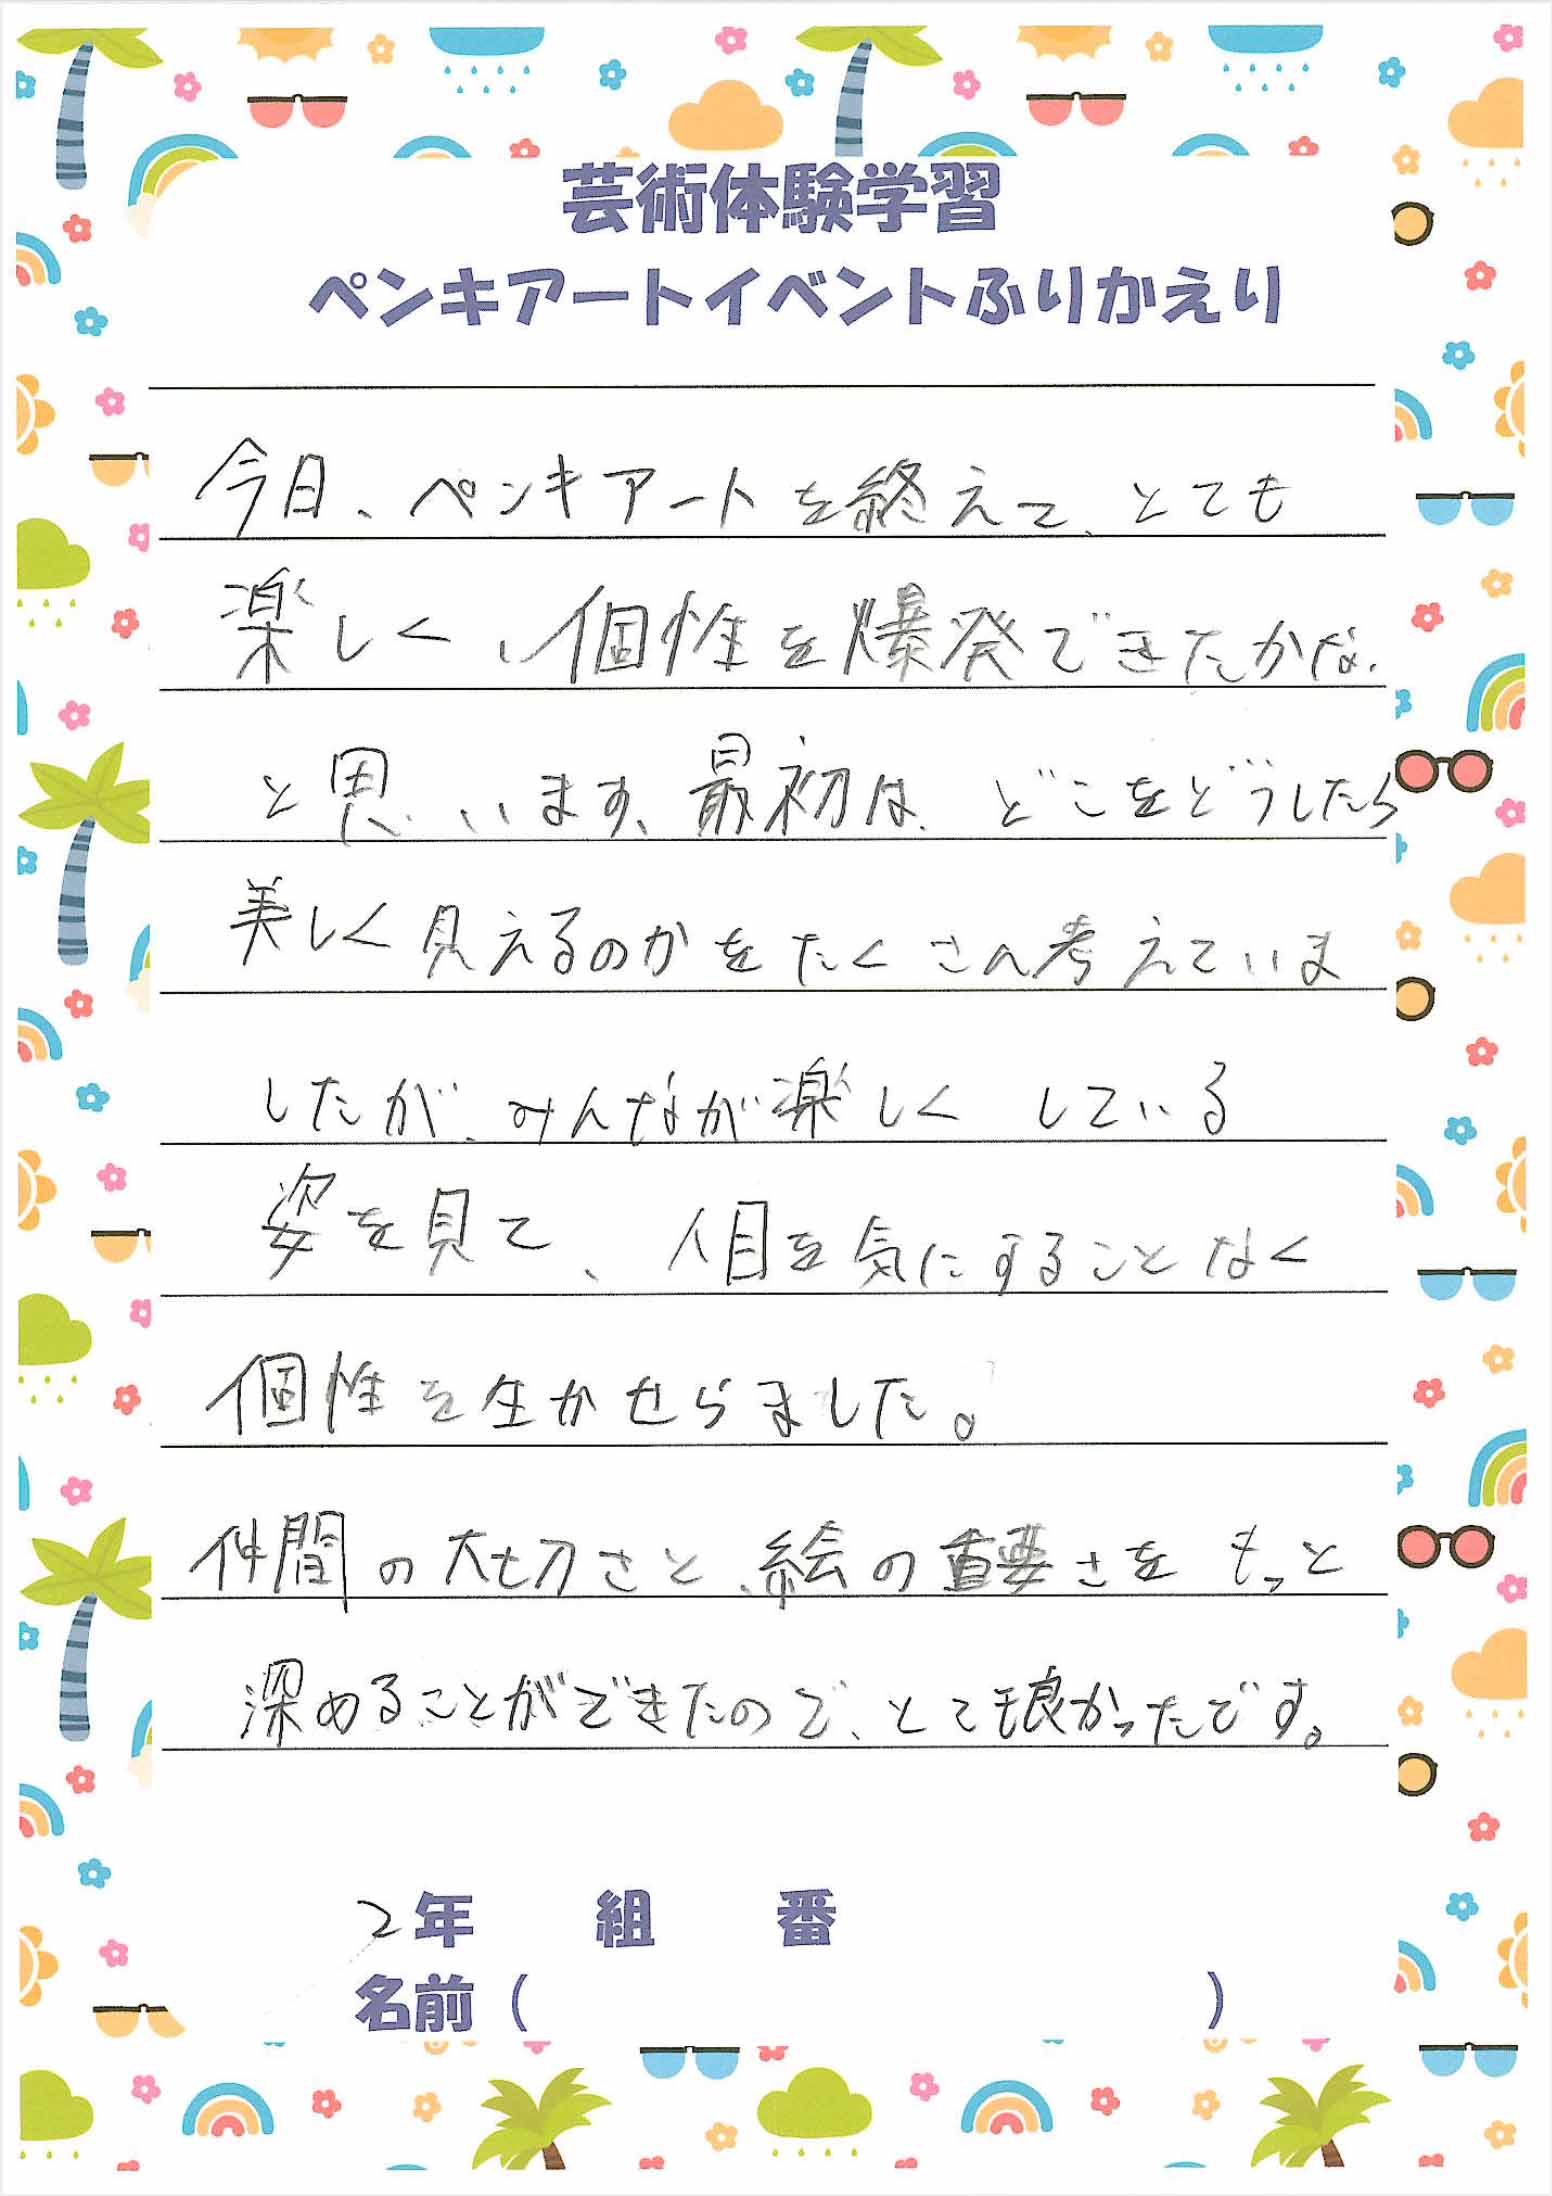 芸術体験学習
ペンキアートイベントふりかえり
今日、ペンキアートを終えて、とても
楽しく、個性を爆発できたかな
と思います、最初は、どこをどうしたら
美しく見えるのかをたくさん考えていま
したが、みんなが楽しくしている
姿を見て、人目を気にすることなく
個性を生かせらました。
仲間の大切さと、絵の重要さをもっと
深めることができたので、とても良かったです。
2年 組 番
名前( )